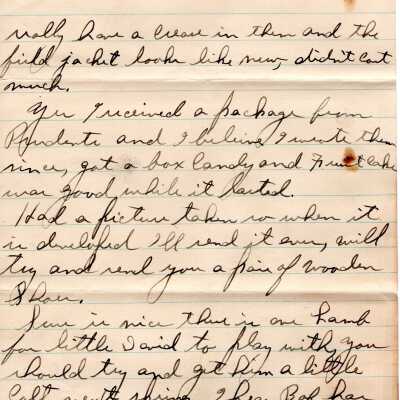 really have a crease in them and the
field jacket looks like new, didn't cost
much.
Yes I received a package from
Prudente and I believe I wrote them
since, got a box Candy and Fruit Cake
was good while it lasted.
Had a picture taken so when it
is developed I'll send it over, will
try and send you a pair of wooden
Shoes.
Sure is nice there is one lamb
for little David to play with, you
should try and get him a little
Colt next spring. I hear Bob has